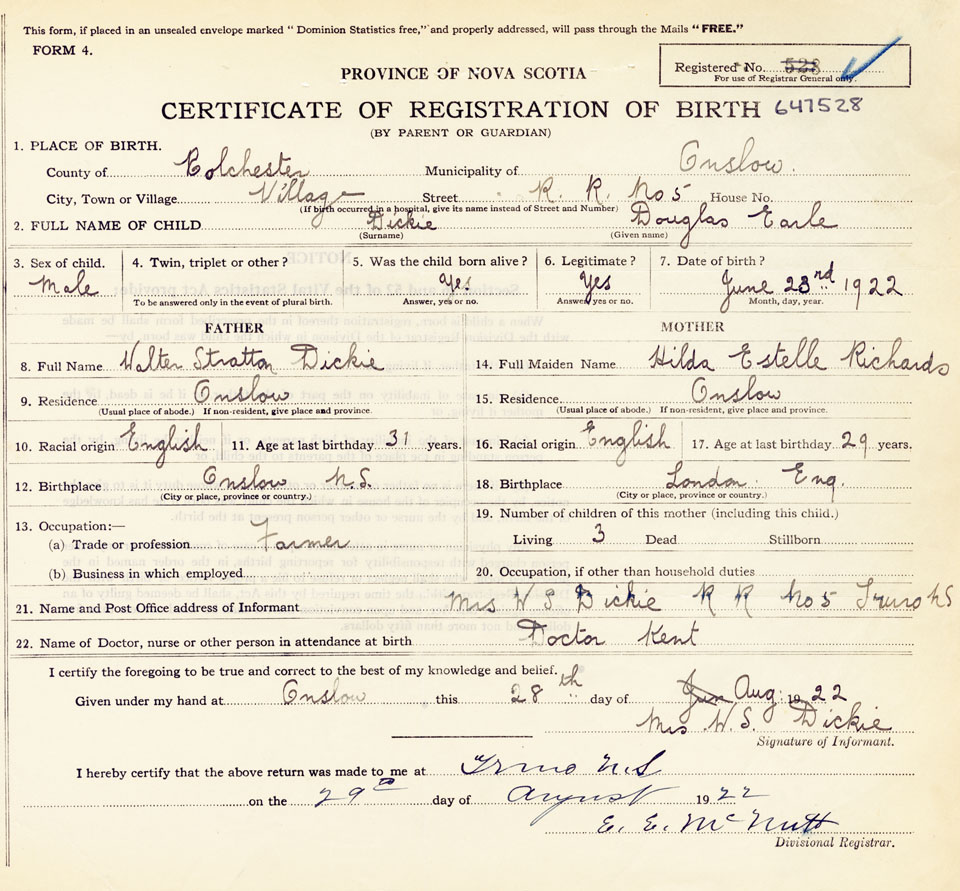 This form, if placed in an unsealed envelope marked "Dominion Statistics free," and properly addressed, will pass through the Mails "FREE."
FORM 4.
Registered No. 528
For use of Registrar General only.
PROVINCE OF NOVA SCOTIA
CERTIFICATE OF REGISTRATION OF BIRTH 647528
(BY PARENT OR GUARDIAN)
1. PLACE OF BIRTH.
County of Colchester Municipality of Onslow.
City, Town or Village Village Street R. R. No 5 House No.
(If birth occurred in a hospital, give its name instead of Street and Number)
2. FULL NAME OF CHILD Dickie Douglas Earle
(Surname) (Given name)
3. Sex of child. 4. Twin, triplet or other? 5. Was the child born alive? 6. Legitimate? 7. Date of birth?
Male Yes Yes June 23rd 1922
To be answered only in the event of plural birth. Answer, yes or no. Answer yes or no. Month, day, year.
FATHER MOTHER
8. Full Name Walter Stratton Dickie 14. Full Maiden Name Hilda Estelle Richards
9. Residence Onslow 15. Residence. Onslow
(Usual place of abode.) If non-resident, give place and province. (Usual place of abode.) If non-resident, give place and province.
10. Racial origin English 11. Age at last birthday 31 years. 16. Racial origin English 17. Age at last birthday 29 years.
12. Birthplace Onslow N.S. 18. Birthplace London. Eng.
(City or place, province or country.) (City or place, province or country.)
13. Occupation:— 19. Number of children of this mother (including this child.)
(a) Trade or profession Farmer Living 3 Dead Stillborn
(b) Business in which employed 20. Occupation, if other than household duties
21. Name and Post Office address of Informant Mrs W S Dickie R R No 5 Truro NS
22. Name of Doctor, nurse or other person in attendance at birth Doctor Kent
I certify the foregoing to be true and correct to the best of my knowledge and belief.
Given under my hand at Onslow this 28th day of Jun Aug. 1922
Mrs W. S. Dickie
Signature of Informant.
I hereby certify that the above return was made to me at Truro N.S
on the 29th day of August 1922
E. E. McNutt
Divisional Registrar.